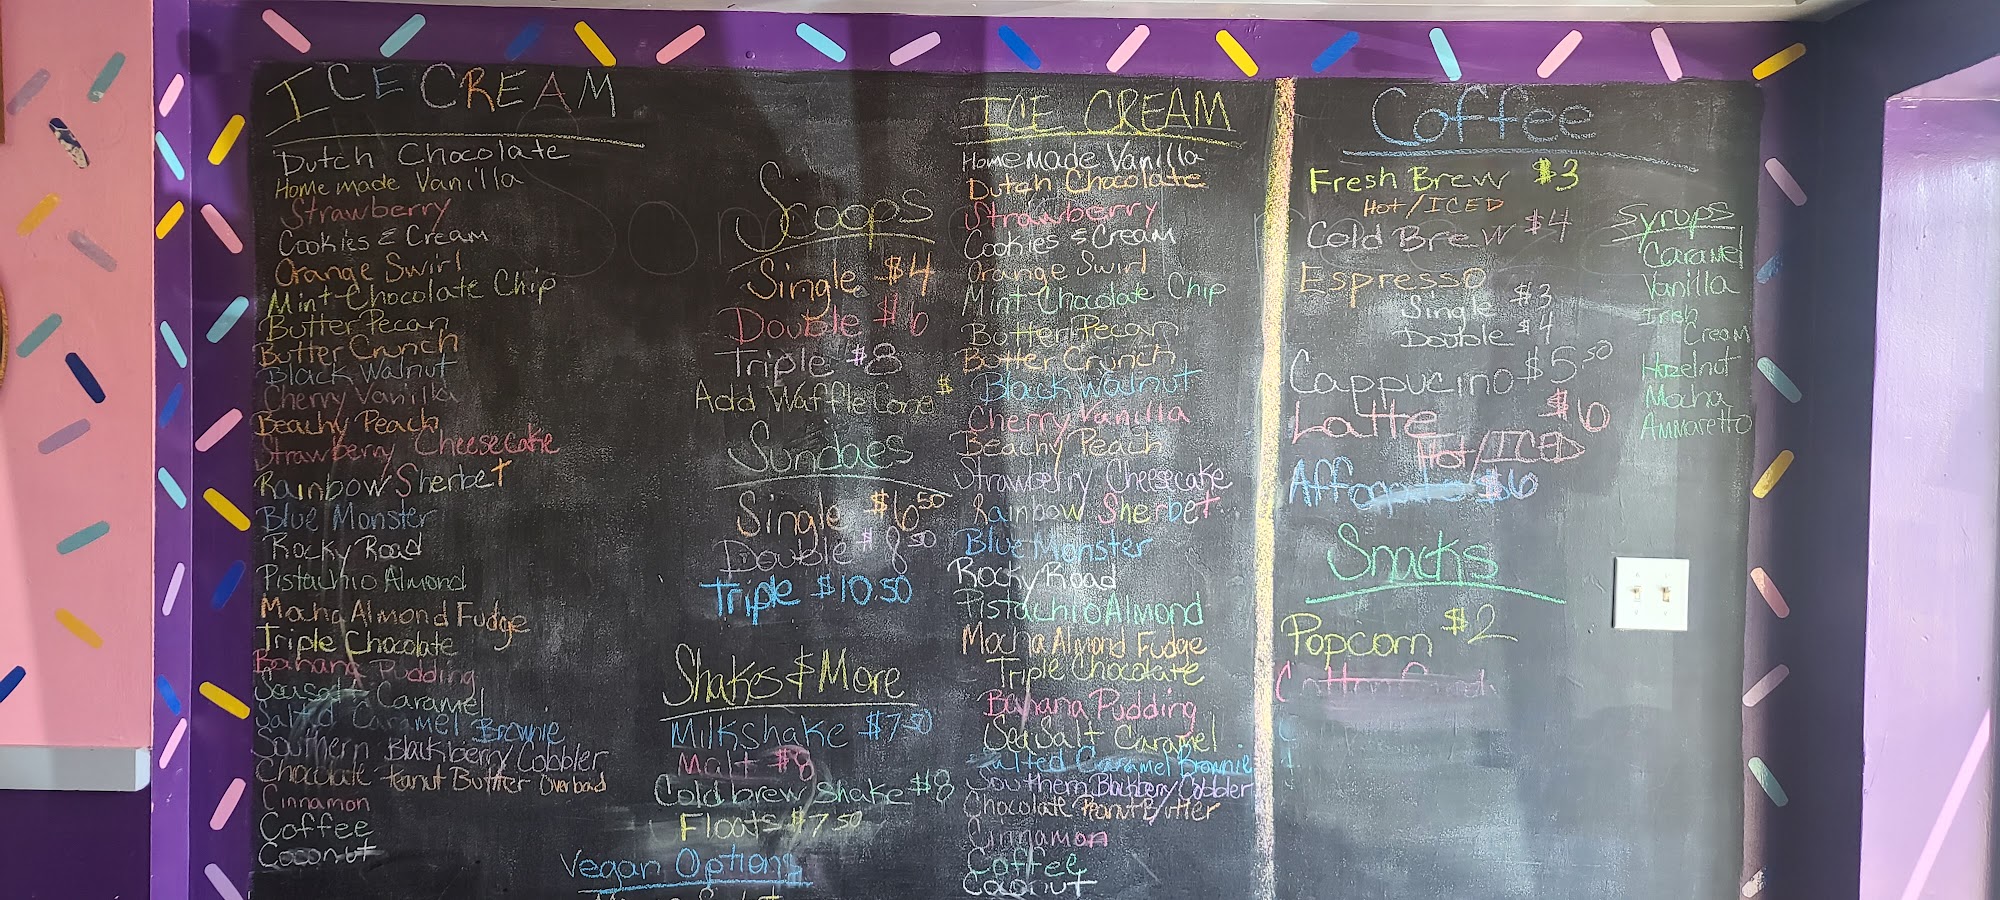 ICE CREAM
Dutch Chocolate
Homemade Vanilla
Strawberry
Cookies & Cream
Orange Swirl
Mint Chocolate Chip
Butter Pecan
Butter Crunch
Black Walnut
Cherry Vanilla
Beachy Peach
Strawberry Cheesecake
Rainbow Sherbet
Blue Monster
Rocky Road
Pistachio Almond
Mocha Almond Fudge
Triple Chocolate
Banana Pudding
Caramel
Salted Caramel Brownie
Southern Blackberry Cobbler
Chocolate Peanut Butter Overload
Cinnamon
Coffee
Coconut
Scoops
Single $4
Double $6
Triple $8
Add Waffle Cone $
Sundaes
Single $6.50
Double $8.50
Triple $10.50
Shakes & More
Milkshake $7.50
Malt $8
Cold brew Shake $8
Floats $7.50
Vegan Options
ICE CREAM
Homemade Vanilla
Dutch Chocolate
Strawberry
Cookies & Cream
Orange Swirl
Mint Chocolate Chip
Butter Pecan
Butter Crunch
Black Walnut
Cherry Vanilla
Beachy Peach
Strawberry Cheesecake
Rainbow Sherbet
Blue Monster
Rocky Road
Pistachio Almond
Mocha Almond Fudge
Triple Chocolate
Banana Pudding
Sea Salt Caramel
Salted Caramel Brownie
Southern Blackberry Cobbler
Chocolate Peanut Butter
Cinnamon
Coffee
Coconut
Coffee
Fresh Brew $3
Hot/ICED
Cold Brew $4
Espresso
Single $3
Double $4
Cappucino $5.50
Latte $6
Hot/ICED
Affogato $6
Syrups
Caramel
Vanilla
Irish
Cream
Hazelnut
Mocha
Ammaretto
Snacks
Popcorn $2